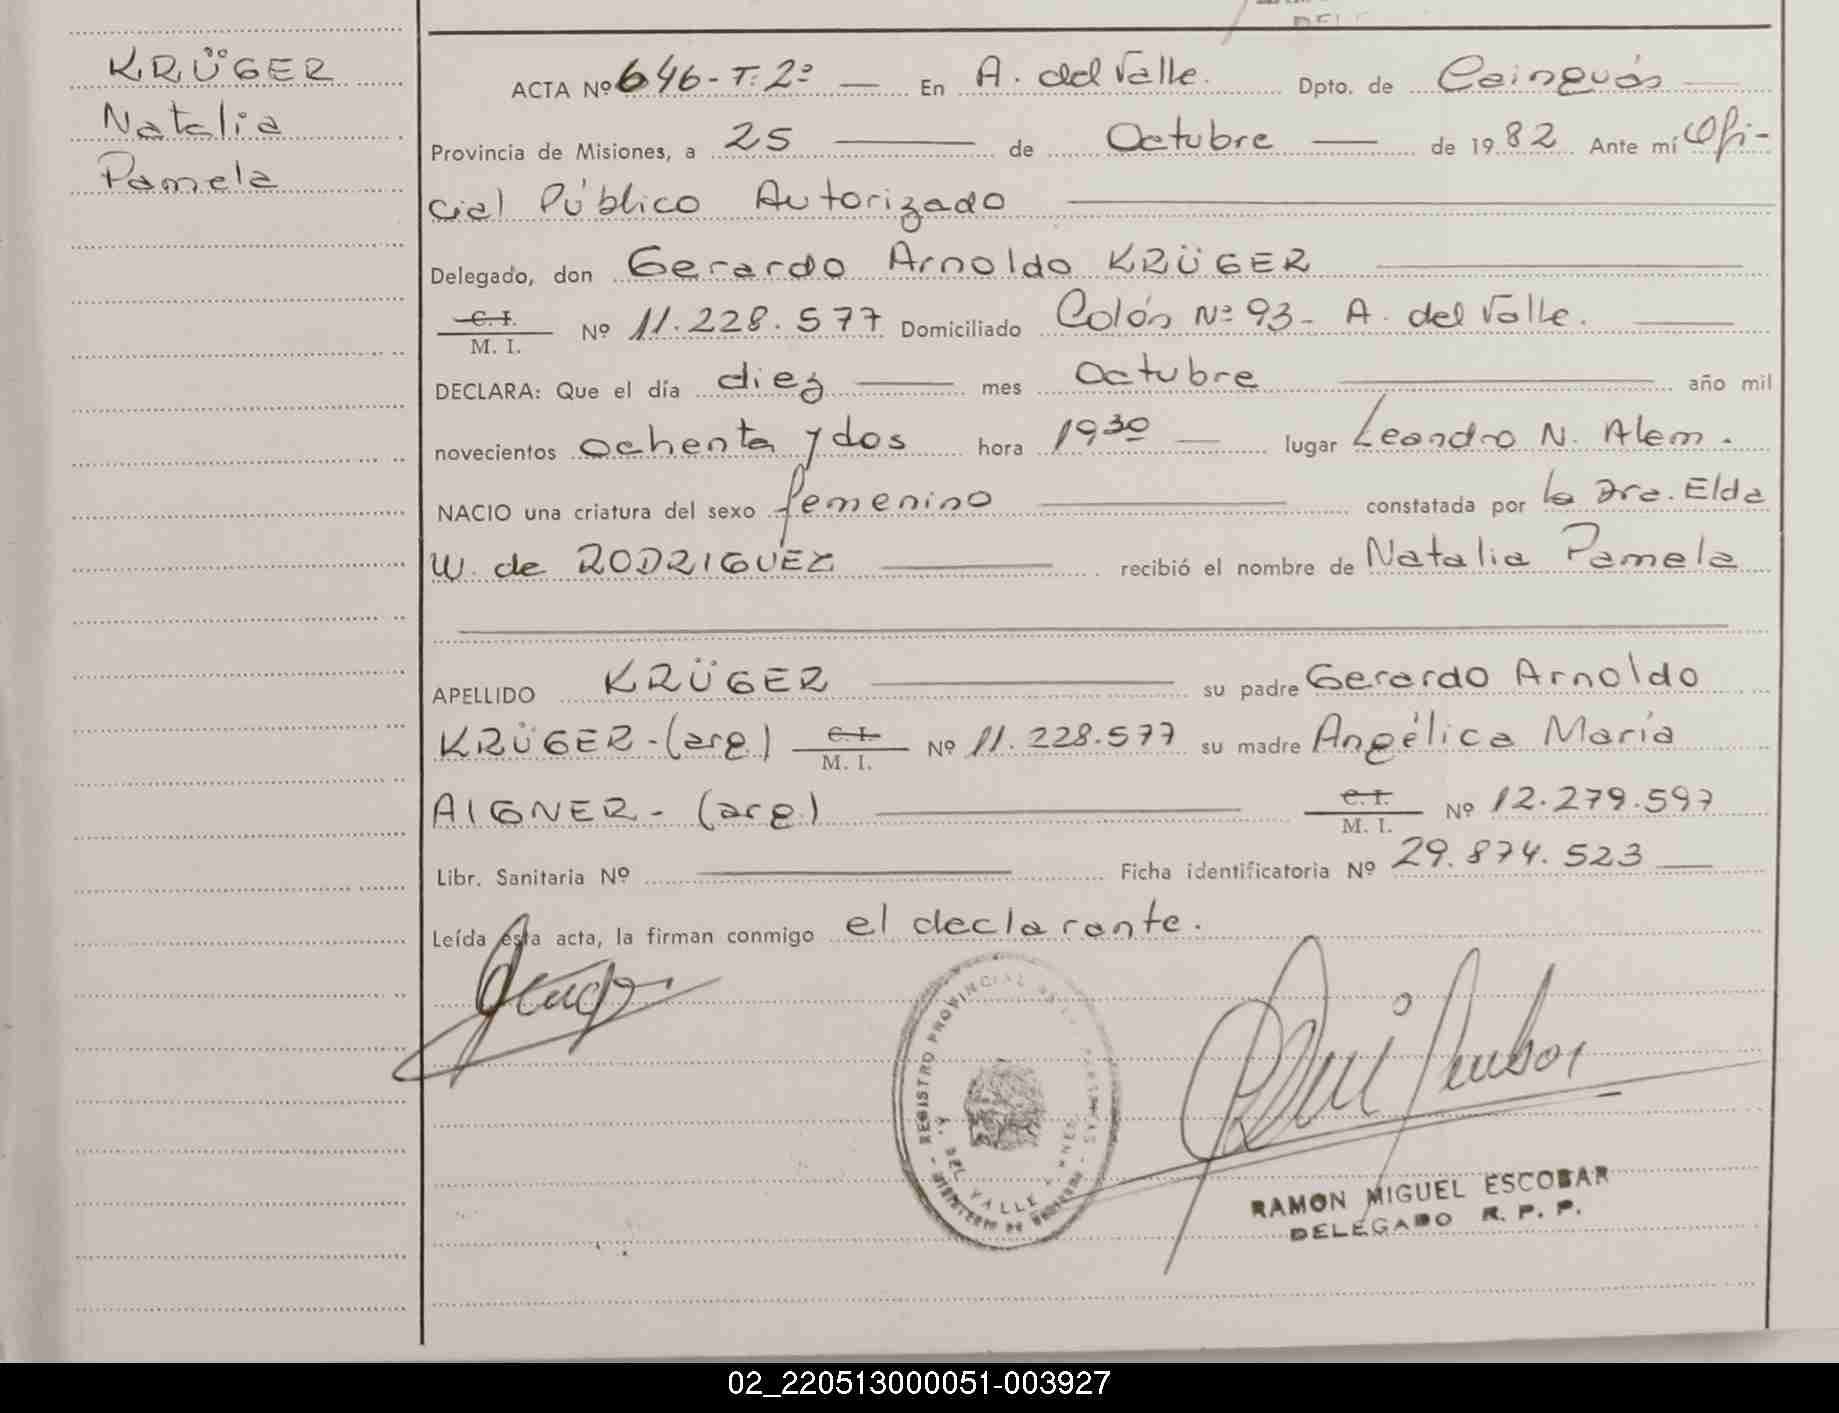 DEL
KRÜGER
Natalia
Pamela
ACTA Nº 646-T:2º — En A. del Valle. Dpto. de Cainguás
Provincia de Misiones, a 25 de Octubre de 1982 Ante mí Ofi-
cial Público Autorizado
Delegado, don Gerardo Arnoldo KRÜGER
C. I.
M. I. Nº 11.228.577 Domiciliado Colón Nº 93- A. del Valle.
DECLARA: Que el día diez mes Octubre año mil
novecientos ochenta y dos hora 19 30 lugar Leandro N. Alem.
NACIO una criatura del sexo femenino constatada por la Dra. Elda
W. de RODRIGUEZ recibió el nombre de Natalia Pamela
APELLIDO KRÜGER su padre Gerardo Arnoldo
KRÜGER-(arg.) C. I. M. I. Nº 11.228.577 su madre Angélica María
AIGNER- (arg.) C. I. M. I. Nº 12.279.597
Libr. Sanitaria Nº Ficha identificatoria Nº 29.874.523
Leída esta acta, la firman conmigo el declarante.
REGISTRO PROVINCIAL DE LAS PERSONAS
DEL VALLE
MINISTERIO DE GOBIERNO
RAMON MIGUEL ESCOBAR
DELEGADO R. P. P.
02_220513000051-003927